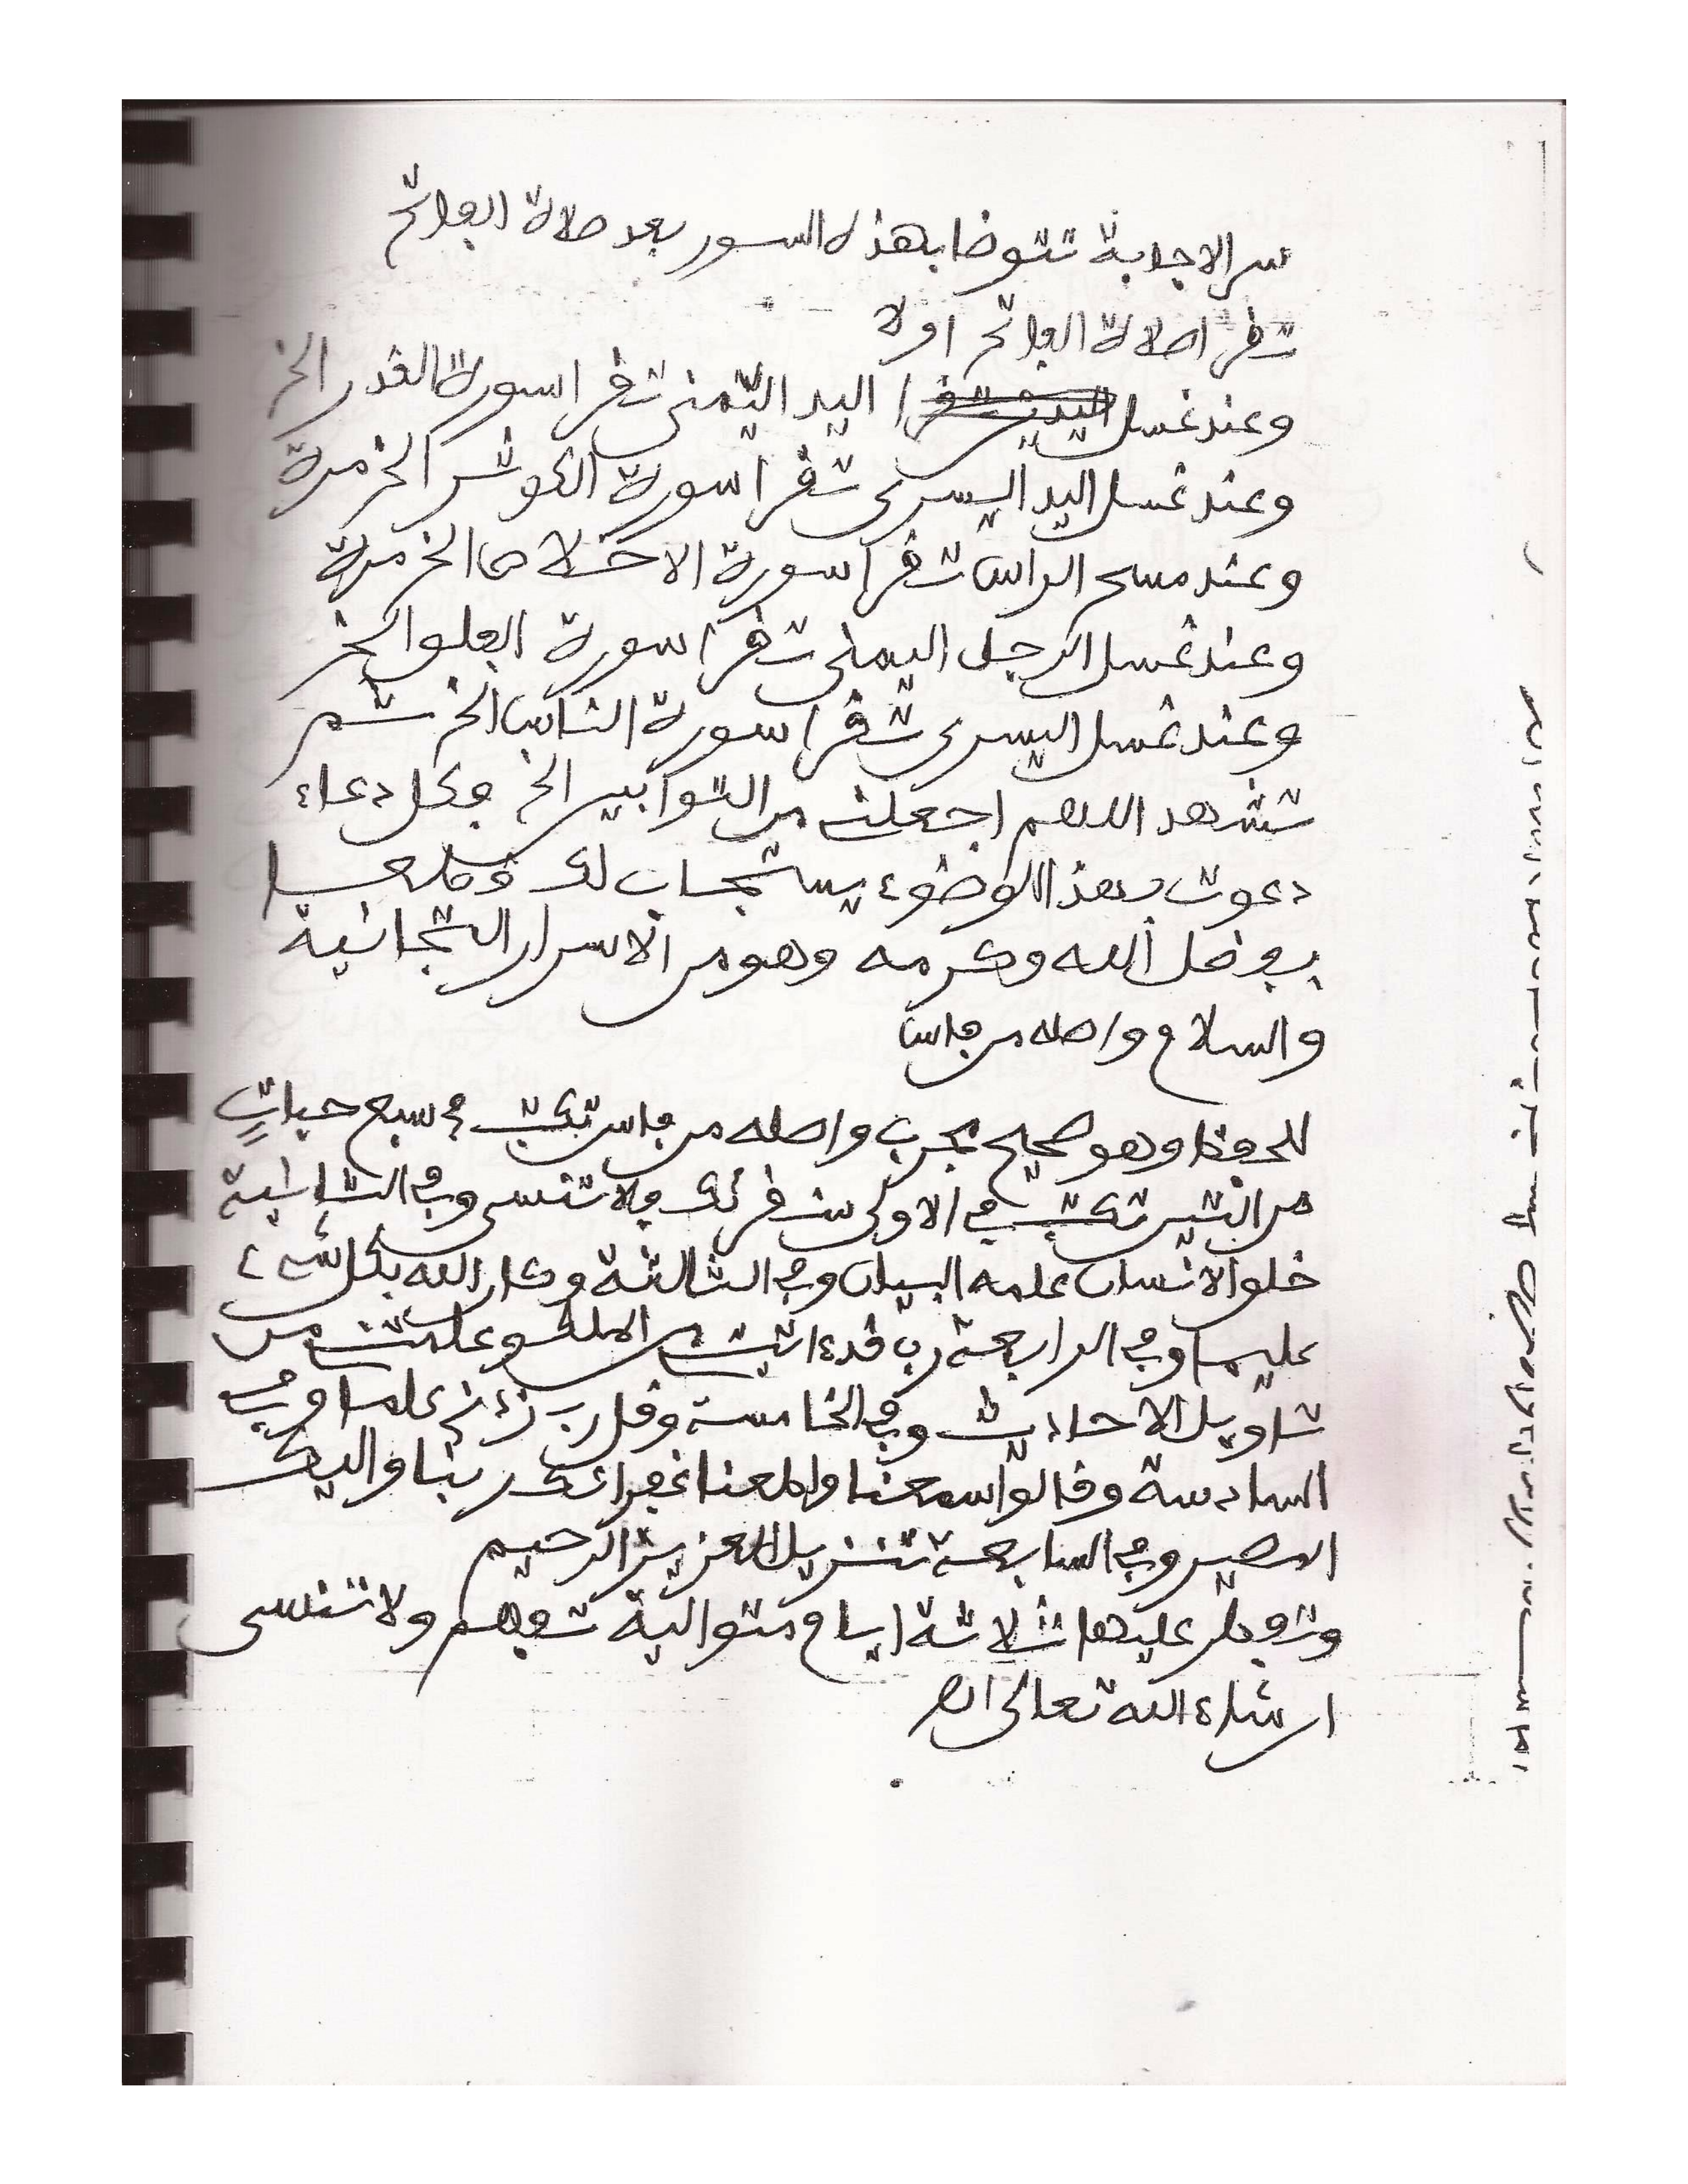 سر الاجابة تتوضا بهذه السور بعد صلاة الفاتح
تقرا صلاة الفاتح اولا
وعند غسل اليد اليمنى تقرا سورة القدر الخ
وعند غسل اليد اليسرى تقرا سورة الكوثر الخ مرة
وعند مسح الراس تقرا سورة الاخلاص الخ مرة
وعند غسل الرجل اليمنى تقرا سورة الفلق الخ
وعند غسل اليسرى تقرا سورة الناس الخ ثم
تشهد اللهم اجعلني من التوابين الخ فكل دعاء
دعوت بهذا الوضوء يستجاب لك
بفضل الله وكرمه وهو من الاسرار التجانية
والسلام واصله من فاس
للحفظ وهو صحيح مجرب واصله من فاس تكتب في سبع حبات
من التين تكتب في الاولى سنقرئك فلا تنسى وفي الثانية
خلق الانسان علمه البيان وفي الثالثة وكان الله بكل شيء
عليما وفي الرابعة رب قد ءاتيتني من الملك وعلمتني من
تاويل الاحاديث وفي الخامسة وقل رب زدني علما وفي
السادسة وقالوا سمعنا واطعنا غفرانك ربنا واليك
المصير وفي السابعة تنزيل العزيز الرحيم
وتفطر عليها ثلاثة ايام متوالية تفهم ولا تنسى
ان شاء الله تعالى انتهى